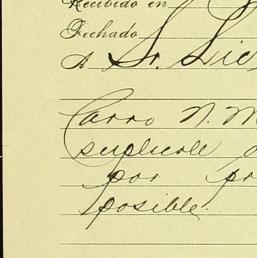 Recibido en
Fechado
A Sr. Lic
Carro N. M
suplicole
por pr
posible.